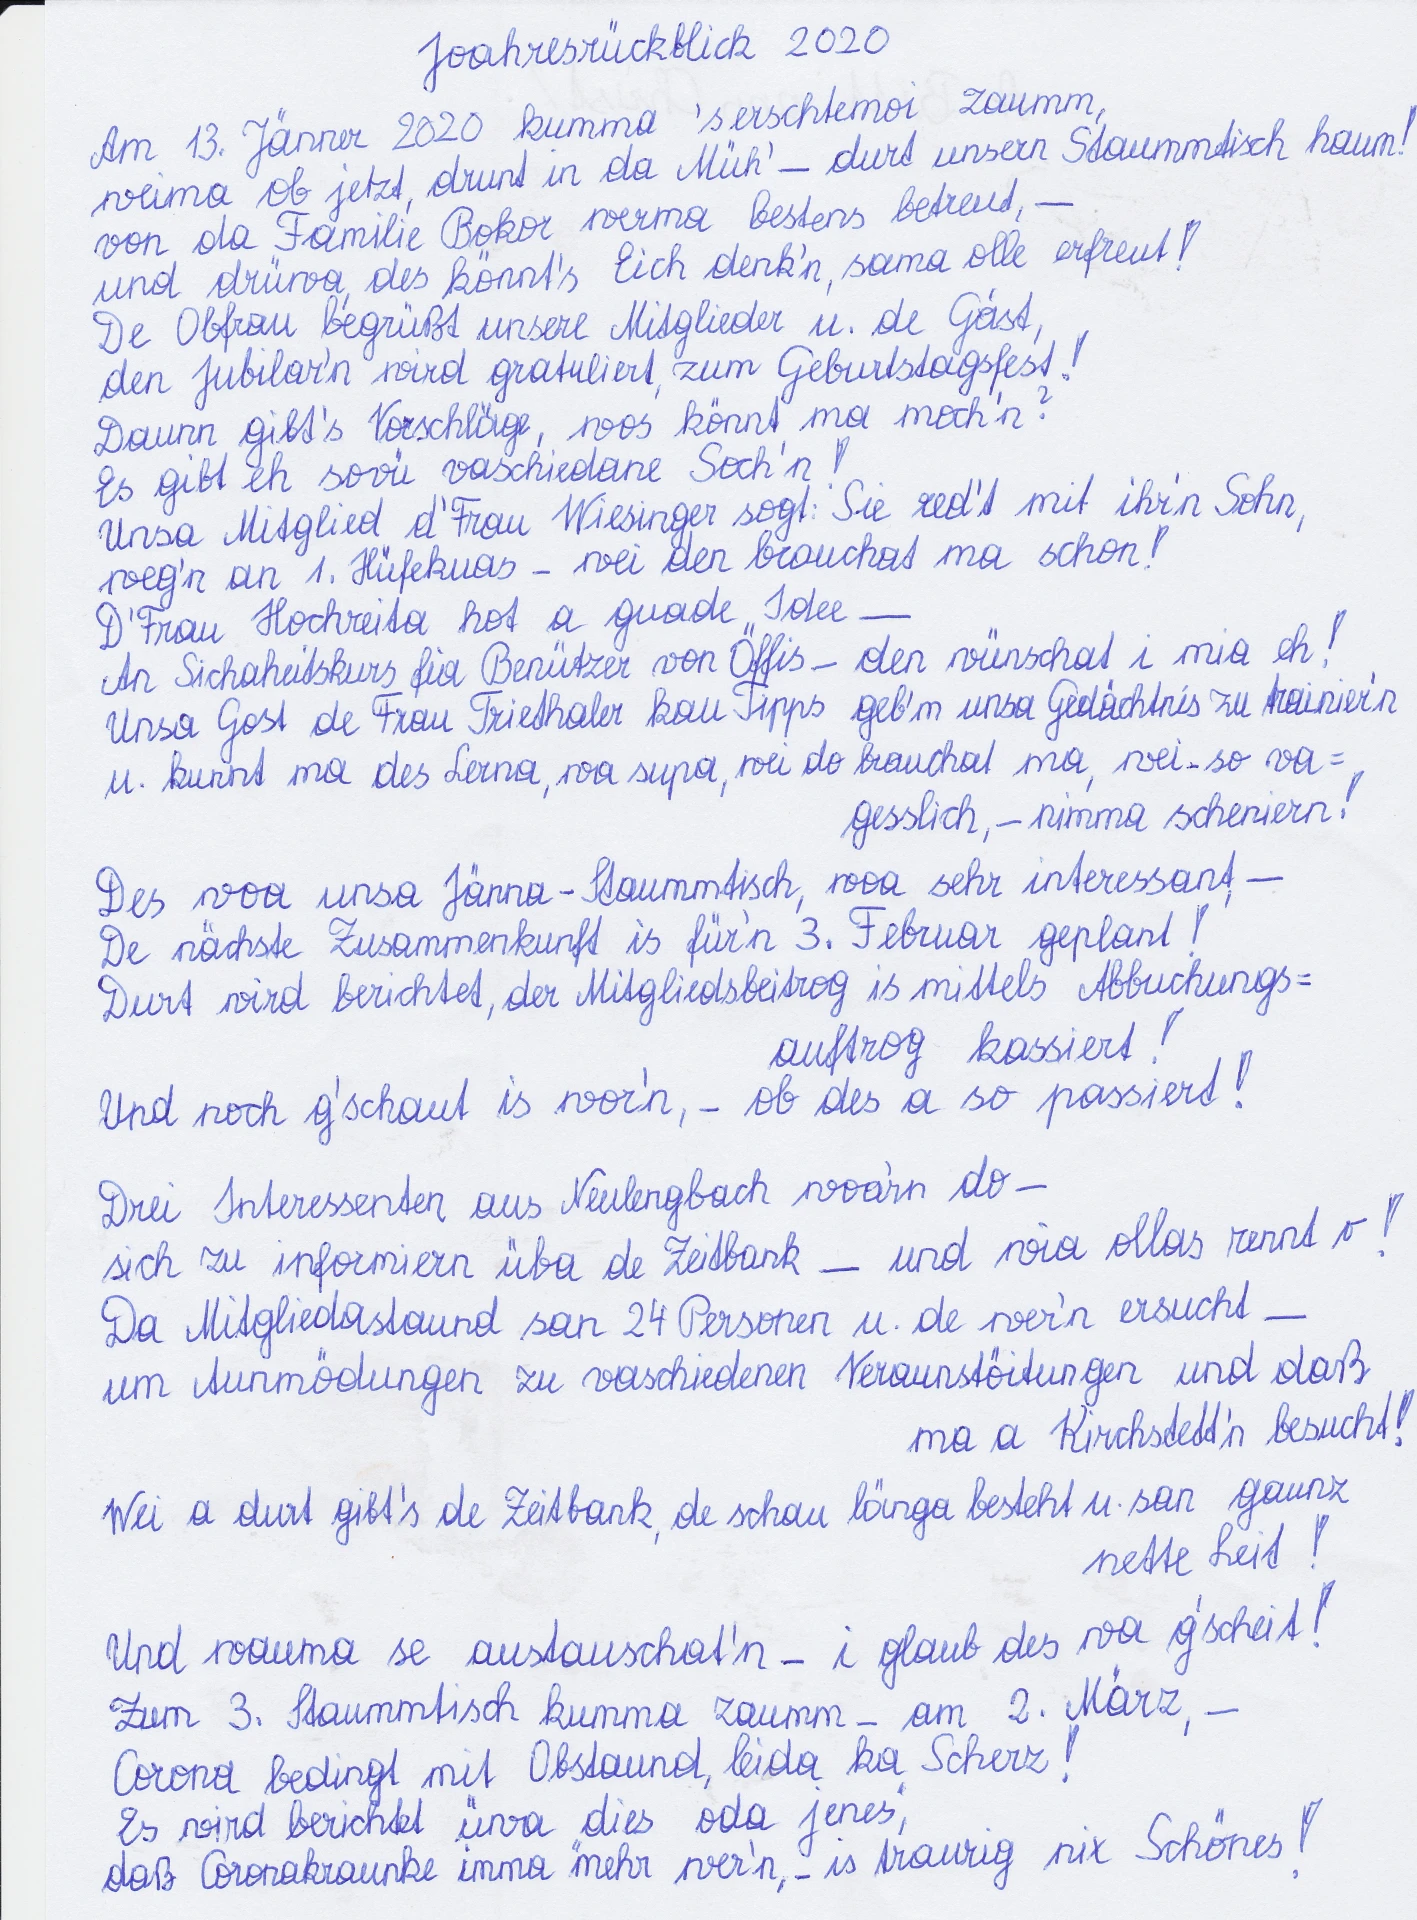 Joahresrückblick 2020
Am 13. Jänner 2020 kumma 's erschtemoi zaumm,
weima ob jetzt, drunt in da Müh' – durt unsern Staummtisch haum!
von da Familie Bokor werma bestens betreut, –
und drüwa, des könnt's Eich denk'n, sama olle erfreut!
De Obfrau begrüßt unsere Mitglieder u. de Gäst,
den Jubilar'n wird gratuliert, zum Geburtstagsfest!
Daunn gibt's Vorschläge, wos könnt ma moch'n?
Es gibt eh sovü vaschiedane Soch'n!
Unsa Mitglied d'Frau Wiesinger sogt: Sie red't mit ihr'n Sohn,
weg'n an 1. Hüfekuas – wei den brauchat ma schon!
D'Frau Hochreita hot a guade Idee –
An Sichaheitskurs fia Benützer von "Öffis – den wünschat i mia eh!
Unsa Gost de Frau Friethaler kau Tipps geb'm unsa Gedächtnis zu trainier'n
u. kunnt ma des Lerna, wa supa, wei do brauchat ma, wei – so va=
gesslich, – nimma scheniern!
Des woa unsa Jänna – Staummtisch, woa sehr interessant, –
De nächste Zusammenkunft is für'n 3. Februar geplant!
Durt wird berichtet, der Mitgliedsbeitrog is mittels Abbuchungs=
auftrog kassiert!
Und noch g'schaut is wor'n, – ob des a so passiert!
Drei Interessenten aus Neulengbach woar'n do –
sich zu informiern üba de Zeitbank – und wia ollas rennt o!
Da Mitgliedastaund san 24 Personen u. de wer'n ersucht –
um Aunmödungen zu vaschiedenen Veraunstöitungen und daß
ma a Kirchstett'n besucht!
Wei a durt gibt's de Zeitbank, de schau länga besteht u. san gaunz
nette Leit!
Und wauma se austauschat'n – i glaub des wa g'scheit!
Zum 3. Staummtisch kumma zaumm – am 2. März, –
Corona bedingt mit Obstaund, leida ka Scherz!
Es wird berichtet ünwa dies oda jenes,
daß Coronakraunke imma mehr wer'n, – is traurig nix Schönes!